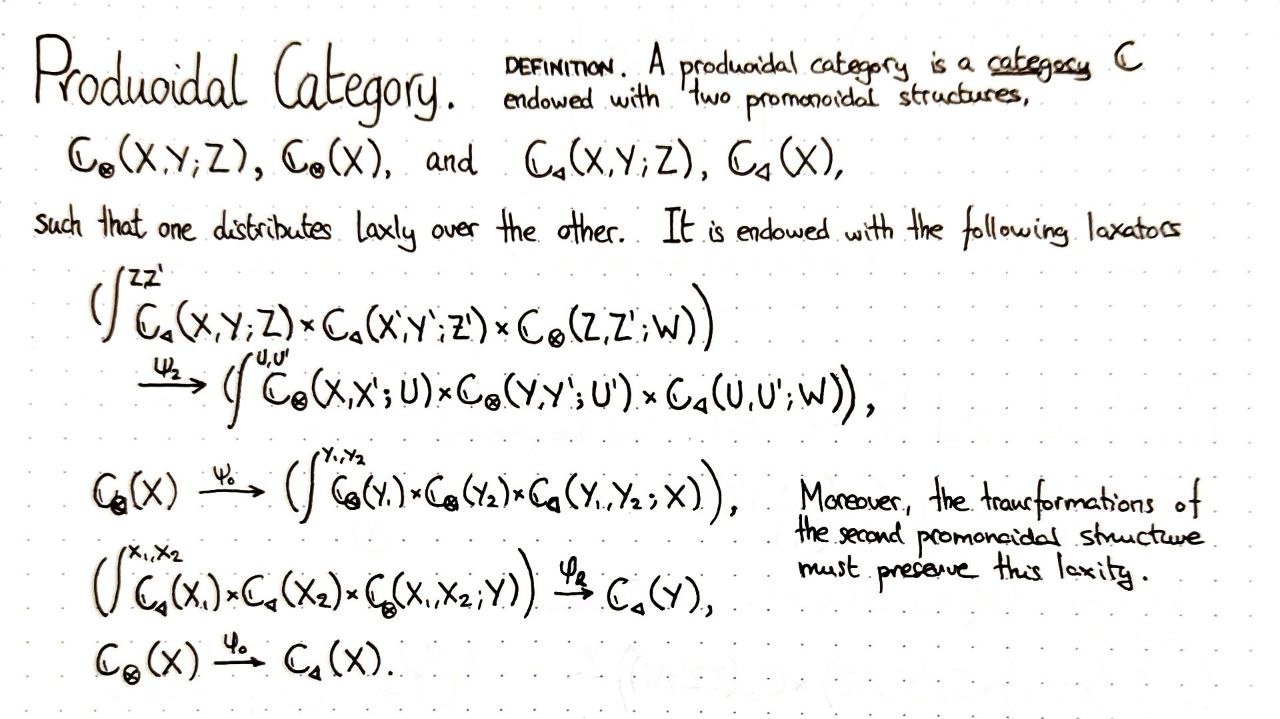 Produoidal Category.
DEFINITION. A produoidal category is a category ℂ
endowed with two promonoidal structures,
ℂ⊗(X,Y;Z), ℂ⊗(X), and ℂ◁(X,Y;Z), ℂ◁(X),
such that one distributes laxly over the other. It is endowed with the following laxators
(∫^{Z,Z'} ℂ◁(X,Y;Z)×ℂ◁(X',Y';Z')×ℂ⊗(Z,Z';W))
ψ₂→ (∫^{U,U'} ℂ⊗(X,X';U)×ℂ⊗(Y,Y';U')×ℂ◁(U,U';W)),
ℂ⊗(X) ψ₀→ (∫^{Y₁,Y₂} ℂ⊗(Y₁)×ℂ⊗(Y₂)×ℂ◁(Y₁,Y₂;X)),
(∫^{X₁,X₂} ℂ◁(X₁)×ℂ◁(X₂)×ℂ⊗(X₁,X₂;Y)) φ₂→ ℂ◁(Y),
ℂ⊗(X) φ₀→ ℂ◁(X).
Moreover, the transformations of
the second promonoidal structure
must preserve this laxity.